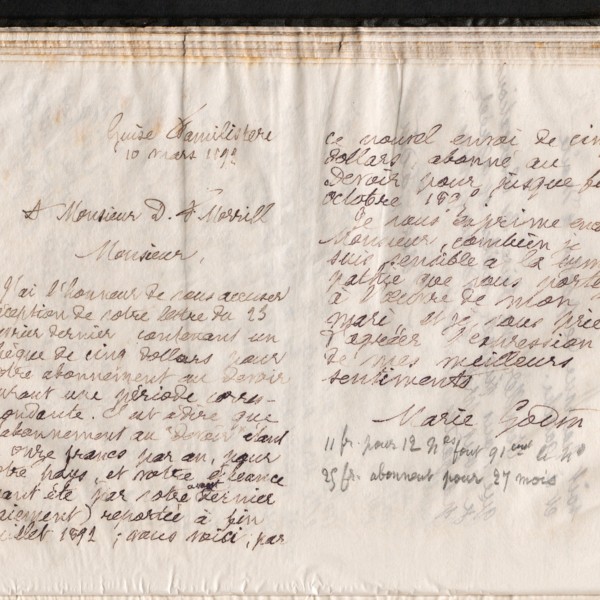 Guise Familistère
10 mars 1892
A Monsieur D. F. Morrill
Monsieur,
J'ai l'honneur de vous accuser
ception de votre lettre du 25
vrier dernier contenant un
hèque de cinq dollars pour
otre abonnement au Devoir
urant une période corres-
ondante. C'est à dire que
l'abonnement au "Devoir" étant
onze francs par an, pour
otre pays, et votre échéance
ant été par votre dernier
avant
aiement) reportée à fin
llet 1892 ; vous voici, par
ce nouvel envoi de cin
dollars, abonné au
Devoir pour jusque fin
octobre
Je vous exprime enc
Monsieur, combien je
suis sensible à la sym
pathie que vous porte
à l'œuvre de mon
mari et je vous prie
d'agréer l'expression
de mes meilleurs
sentiments
Marie Godin
11 fr. pour 12 nos font 91 cent le no
25 fr. abonnent pour 27 mois